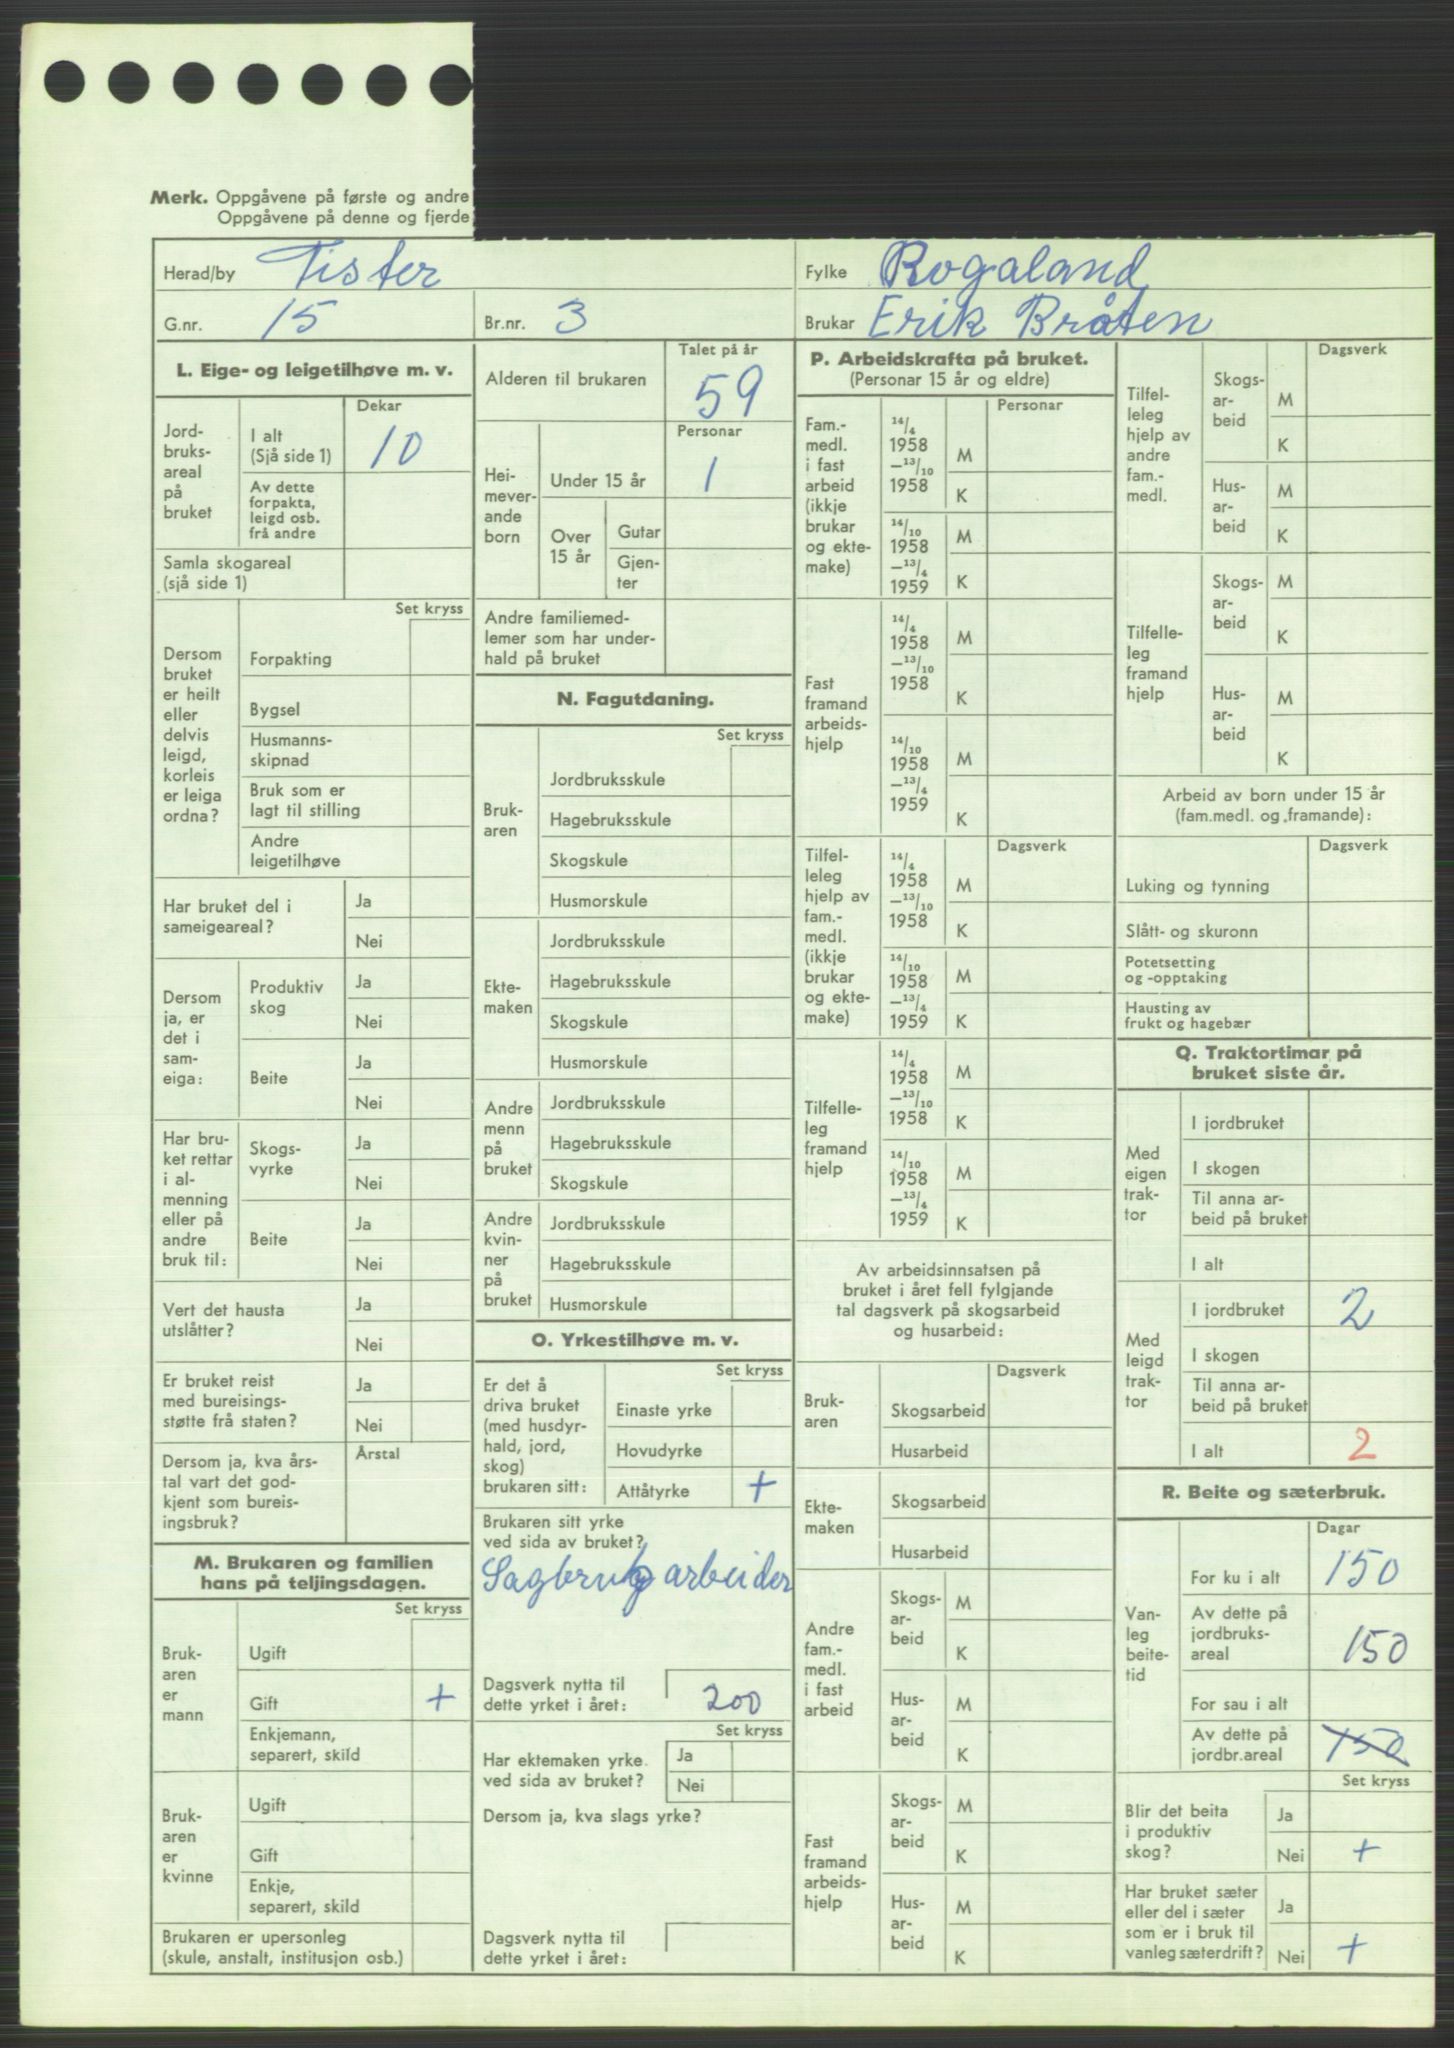 Merk. Oppgåvene på første og andre
Oppgåvene på denne og fjerde
Herad/by Tister
Fylke Rogaland
G.nr. 15
Br.nr. 3
Brukar Erik Bråten
L. Eige- og leigetilhøve m. v.
Dekar
Jord-
bruks-
areal
på
bruket
I alt
(Sjå side 1) 10
Av dette
forpakta,
leigd osb.
frå andre
Samla skogareal
(sjå side 1)
Set kryss
Dersom
bruket
er heilt
eller
delvis
leigd,
korleis
er leiga
ordna?
Forpakting
Bygsel
Husmanns-
skipnad
Bruk som er
lagt til stilling
Andre
leigetilhøve
Har bruket del i
sameigeareal?
Ja
Nei
Dersom
ja, er
det i
sam-
eiga:
Produktiv
skog
Ja
Nei
Beite
Ja
Nei
Har bru-
ket rettar
i al-
menning
eller på
andre
bruk til:
Skogs-
vyrke
Ja
Nei
Beite
Ja
Nei
Vert det hausta
utslåtter?
Ja
Nei
Er bruket reist
med bureisings-
støtte frå staten?
Ja
Nei
Dersom ja, kva års-
tal vart det god-
kjent som bureis-
ingsbruk?
Årstal
M. Brukaren og familien
hans på teljingsdagen.
Set kryss
Bruk-
aren
er
mann
Ugift
Gift +
Enkjemann,
separert, skild
Bruk-
aren
er
kvinne
Ugift
Gift
Enkje,
separert, skild
Brukaren er upersonleg
(skule, anstalt, institusjon osb.)
Talet på år
Alderen til brukaren 59
Personar
Hei-
mever-
ande
born
Under 15 år 1
Over
15 år
Gutar
Gjen-
ter
Andre familiemed-
lemer som har under-
hald på bruket
N. Fagutdaning.
Set kryss
Bruk-
aren
Jordbruksskule
Hagebruksskule
Skogskule
Husmorskule
Ekte-
maken
Jordbruksskule
Hagebruksskule
Skogskule
Husmorskule
Andre
menn
på
bruket
Jordbruksskule
Hagebruksskule
Skogskule
Andre
kvin-
ner
på
bruket
Jordbruksskule
Hagebruksskule
Husmorskule
O. Yrkestilhøve m. v.
Set kryss
Er det å
driva bruket
(med husdyr-
hald, jord,
skog)
brukaren sitt:
Einaste yrke
Hovudyrke
Attåtyrke +
Brukaren sitt yrke
ved sida av bruket?
Sagbruks arbeider
Dagsverk nytta til
dette yrket i året: 200
Set kryss
Har ektemaken yrke
ved sida av bruket?
Ja
Nei
Dersom ja, kva slags yrke?
Dagsverk nytta til
dette yrket i året:
P. Arbeidskrafta på bruket.
(Personar 15 år og eldre)
Personar
Fam.-
medl.
i fast
arbeid
(ikkje
brukar
og ekte-
make)
14/4
1958
—13/10
1958
M
K
14/10
1958
—13/4
1959
M
K
Fast
framand
arbeids-
hjelp
14/4
1958
—13/10
1958
M
K
14/10
1958
—13/4
1959
M
K
Dagsverk
Tilfel-
leleg
hjelp av
fam.-
medl.
(ikkje
brukar
og ekte-
make)
14/4
1958
—13/10
1958
M
K
14/10
1958
—13/4
1959
M
K
Tilfelle-
leg
framand
hjelp
14/4
1958
—13/10
1958
M
K
14/10
1958
—13/4
1959
M
K
Av arbeidsinnsatsen på
bruket i året fell fylgjande
tal dagsverk på skogsarbeid
og husarbeid:
Dagsverk
Bruk-
aren
Skogsarbeid
Husarbeid
Ekte-
maken
Skogsarbeid
Husarbeid
Andre
fam.-
medl.
i fast
arbeid
Skogs-
ar-
beid
M
K
Hus-
ar-
beid
M
K
Fast
framand
arbeids-
hjelp
Skogs-
ar-
beid
M
K
Hus-
ar-
beid
M
K
Dagsverk
Tilfel-
leleg
hjelp av
andre
fam.-
medl.
Skogs-
ar-
beid
M
K
Hus-
ar-
beid
M
K
Tilfelle-
leg
framand
hjelp
Skogs-
ar-
beid
M
K
Hus-
ar-
beid
M
K
Arbeid av born under 15 år
(fam.medl. og framande):
Dagsverk
Luking og tynning
Slått- og skuronn
Potetsetting
og -opptaking
Hausting av
frukt og hagebær
Q. Traktortimar på
bruket siste år.
Med
eigen
trak-
tor
I jordbruket
I skogen
Til anna ar-
beid på bruket
I alt
Med
leigd
trak-
tor
I jordbruket 2
I skogen
Til anna ar-
beid på bruket
I alt 2
R. Beite og sæterbruk.
Dagar
Van-
leg
beite-
tid
For ku i alt 150
Av dette på
jordbruks-
areal 150
For sau i alt
Av dette på
jordbr.areal 150
Set kryss
Blir det beita
i produktiv
skog?
Ja
Nei +
Har bruket sæter
eller del i sæter
som er i bruk til
vanleg sæterdrift?
Ja
Nei +